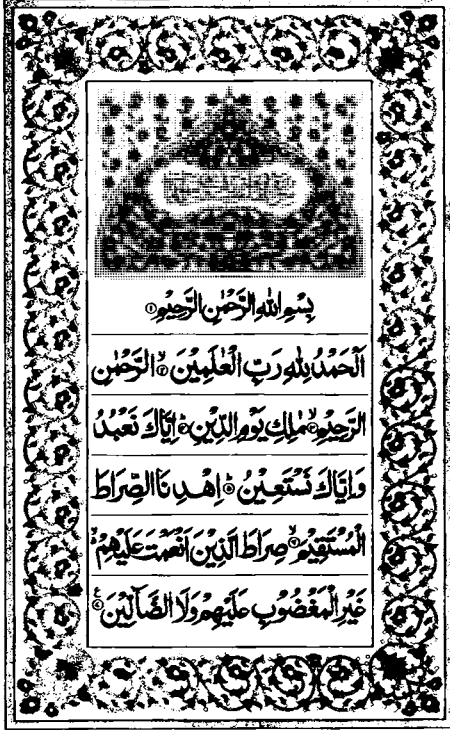 بِسْمِ اللهِ الرَّحْمٰنِ الرَّحِيْمِ ۝۱
اَلْحَمْدُ لِلّٰهِ رَبِّ الْعٰلَمِيْنَ ۙ۝۲ الرَّحْمٰنِ
الرَّحِيْمِ ۙ۝۳ مٰلِكِ يَوْمِ الدِّيْنِ ؕ۝۴ اِيَّاكَ نَعْبُدُ
وَاِيَّاكَ نَسْتَعِيْنُ ؕ۝۵ اِهْدِنَا الصِّرَاطَ
الْمُسْتَقِيْمَ ۙ۝۶ صِرَاطَ الَّذِيْنَ اَنْعَمْتَ عَلَيْهِمْ ۙ
غَيْرِ الْمَغْضُوْبِ عَلَيْهِمْ وَلَا الضَّآلِّيْنَ ۝۷